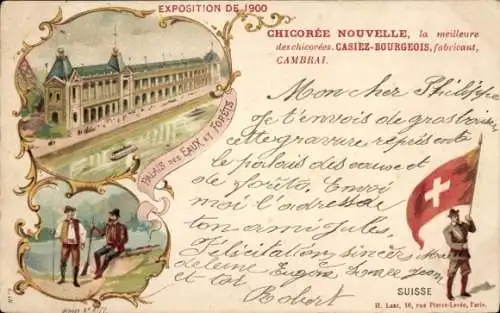 EXPOSITION DE 1900
CHICORÉE NOUVELLE, la meilleure
des chicorées. CASIEZ-BOURGEOIS, fabricant,
CAMBRAI.
PALAIS DES EAUX ET FORÊTS
Mon cher Philippe
Je t'envois de gros
cette gravure représente
le palais des eaux et
de forêts. Envoi
moi l'adresse de
ton ami Jules.
Félicitation sincère
Eugène, Jean
et
Robert
SUISSE
H. Laas, 18, rue Pierre-Levée, Paris.